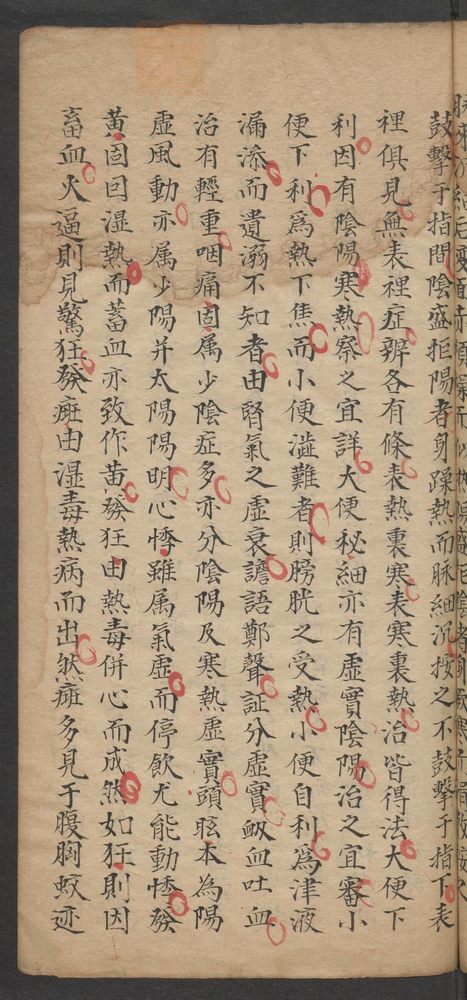 鼓擊于指間陰盛拒陽者身躁熱而脉細沉按之不鼓擊于指下表
裡俱見無表裡症辨各有條表熱裏寒表寒裏熱治皆得法大便下
利因有陰陽寒熱察之宜詳大便秘細亦有虛實陰陽治之宜審小
便下利爲熱下焦而小便澁難者則膀胱之受熱小便自利爲津液
漏滲而遺溺不知者由腎氣之虛衰譫語鄭聲証分虛實衂血吐血
治有輕重咽痛固属少陰症多亦分陰陽及寒熱虛實頭眩本為陽
虛風動亦属少陽并太陽陽明心悸雖属氣虛而停飲尤能動悸發
黄固囙湿熱而蓄血亦致作黄發狂由熱毒併心而成然如狂則因
畜血火逼則見驚狂發癍由湿毒熱病而出然癍多見于腹胸蚊迹